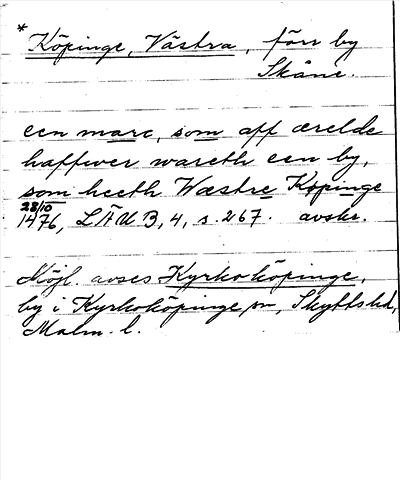 * Köpinge, Västra, förr by
Skåne.
een marc, som aff ærelde
haffwer wareth een by,
som heeth Wæstre Köpinge
28/10
1476, LÄU B, 4, s. 267. avskr.
Möjl. avses Kyrkoköpinge,
by i Kyrkoköpinge sn, Skyttshd,
Malm. l.